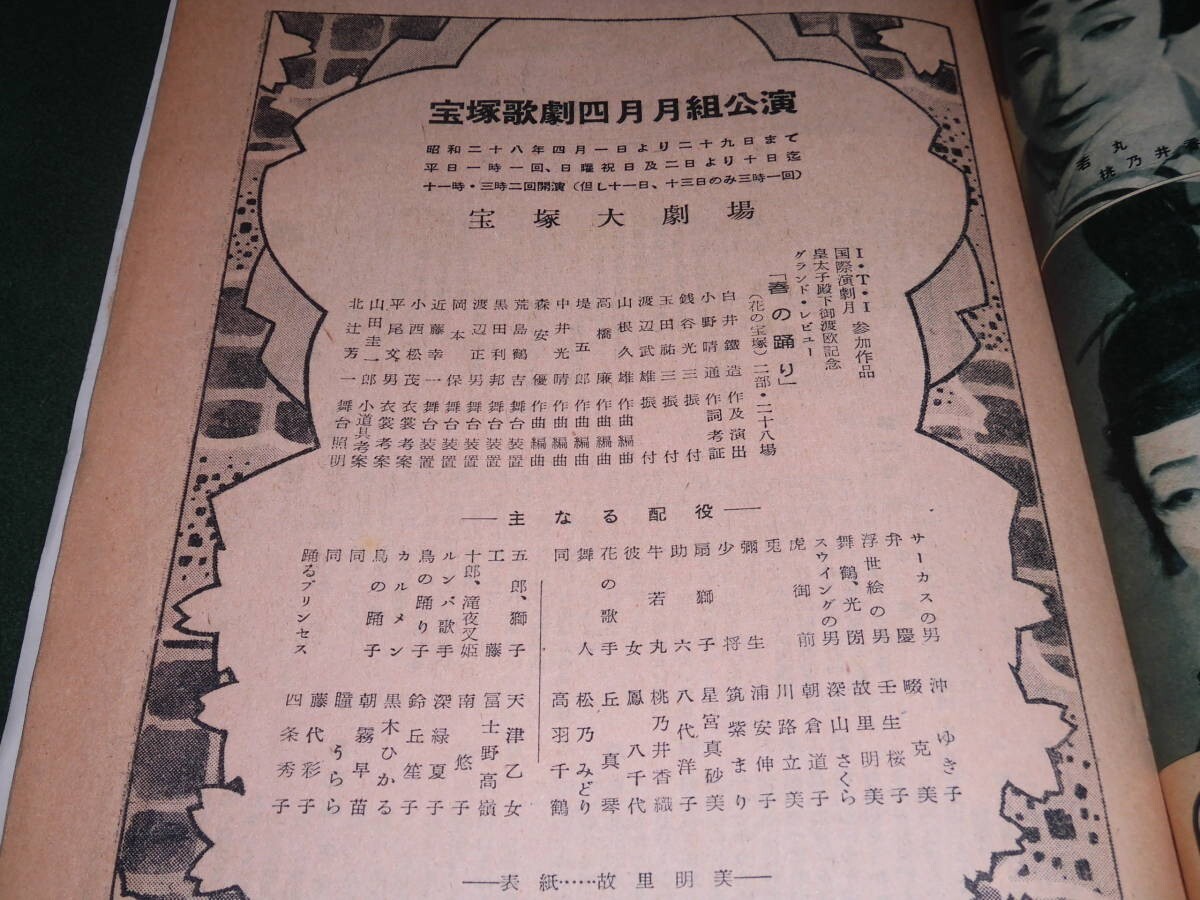 宝塚歌劇四月月組公演
昭和二十八年四月一日より二十九日まで
平日一時一回、日曜祝日及二日より十日迄
十一時・三時二回開演(但し十一日、十三日のみ三時一回)
宝塚大劇場
I・T・I 参加作品
国際演劇月
皇太子殿下御渡欧記念
グランド・レビュー
「春の踊り」
(花の宝塚)二部・二十八場
白井鐵造 作及演出
小野晴通 作詞考証
銭谷光三 振付
玉田祐三 振付
渡辺武雄 振付
山根久雄 作曲編曲
高橋廉 作曲編曲
堤五郎 作曲編曲
中井光晴 作曲編曲
森安優 作曲編曲
荒島鶴吉 舞台装置
黒田利邦 舞台装置
渡辺正男 舞台装置
岡本保 舞台装置
近藤幸一 舞台装置
小西松茂 衣裳考案
平尾文男 衣裳考案
山田圭一郎 小道具考案
北辻芳一 舞台照明
―主なる配役―
サーカスの男 沖ゆき子
弁慶 畷克美
浮世絵の男 壬生桜子
舞鶴、光圀 故里明美
スウイングの男 深山さくら
虎御前 朝倉道子
兎 川路立美
彌生 浦安伸子
少将 筑紫まり
扇獅子 星宮真砂美
助六 八代洋子
牛若丸 桃乃井香織
彼女 鳳八千代
花の歌手 丘真琴
舞人 松乃みどり
同 高羽千鶴
五郎、獅子 天津乙女
工藤 冨士野高嶺
十郎、滝夜叉姫 南悠子
ルンバ歌手 深緑夏子
鳥の踊り子 鈴丘笙子
カルメン 黒木ひかる
鳥の踊子 朝霧早苗
同 瞳うらら
同 藤代彩子
踊るプリンセス 四条秀子
―表紙……故里明美―
若丸
桃乃井香